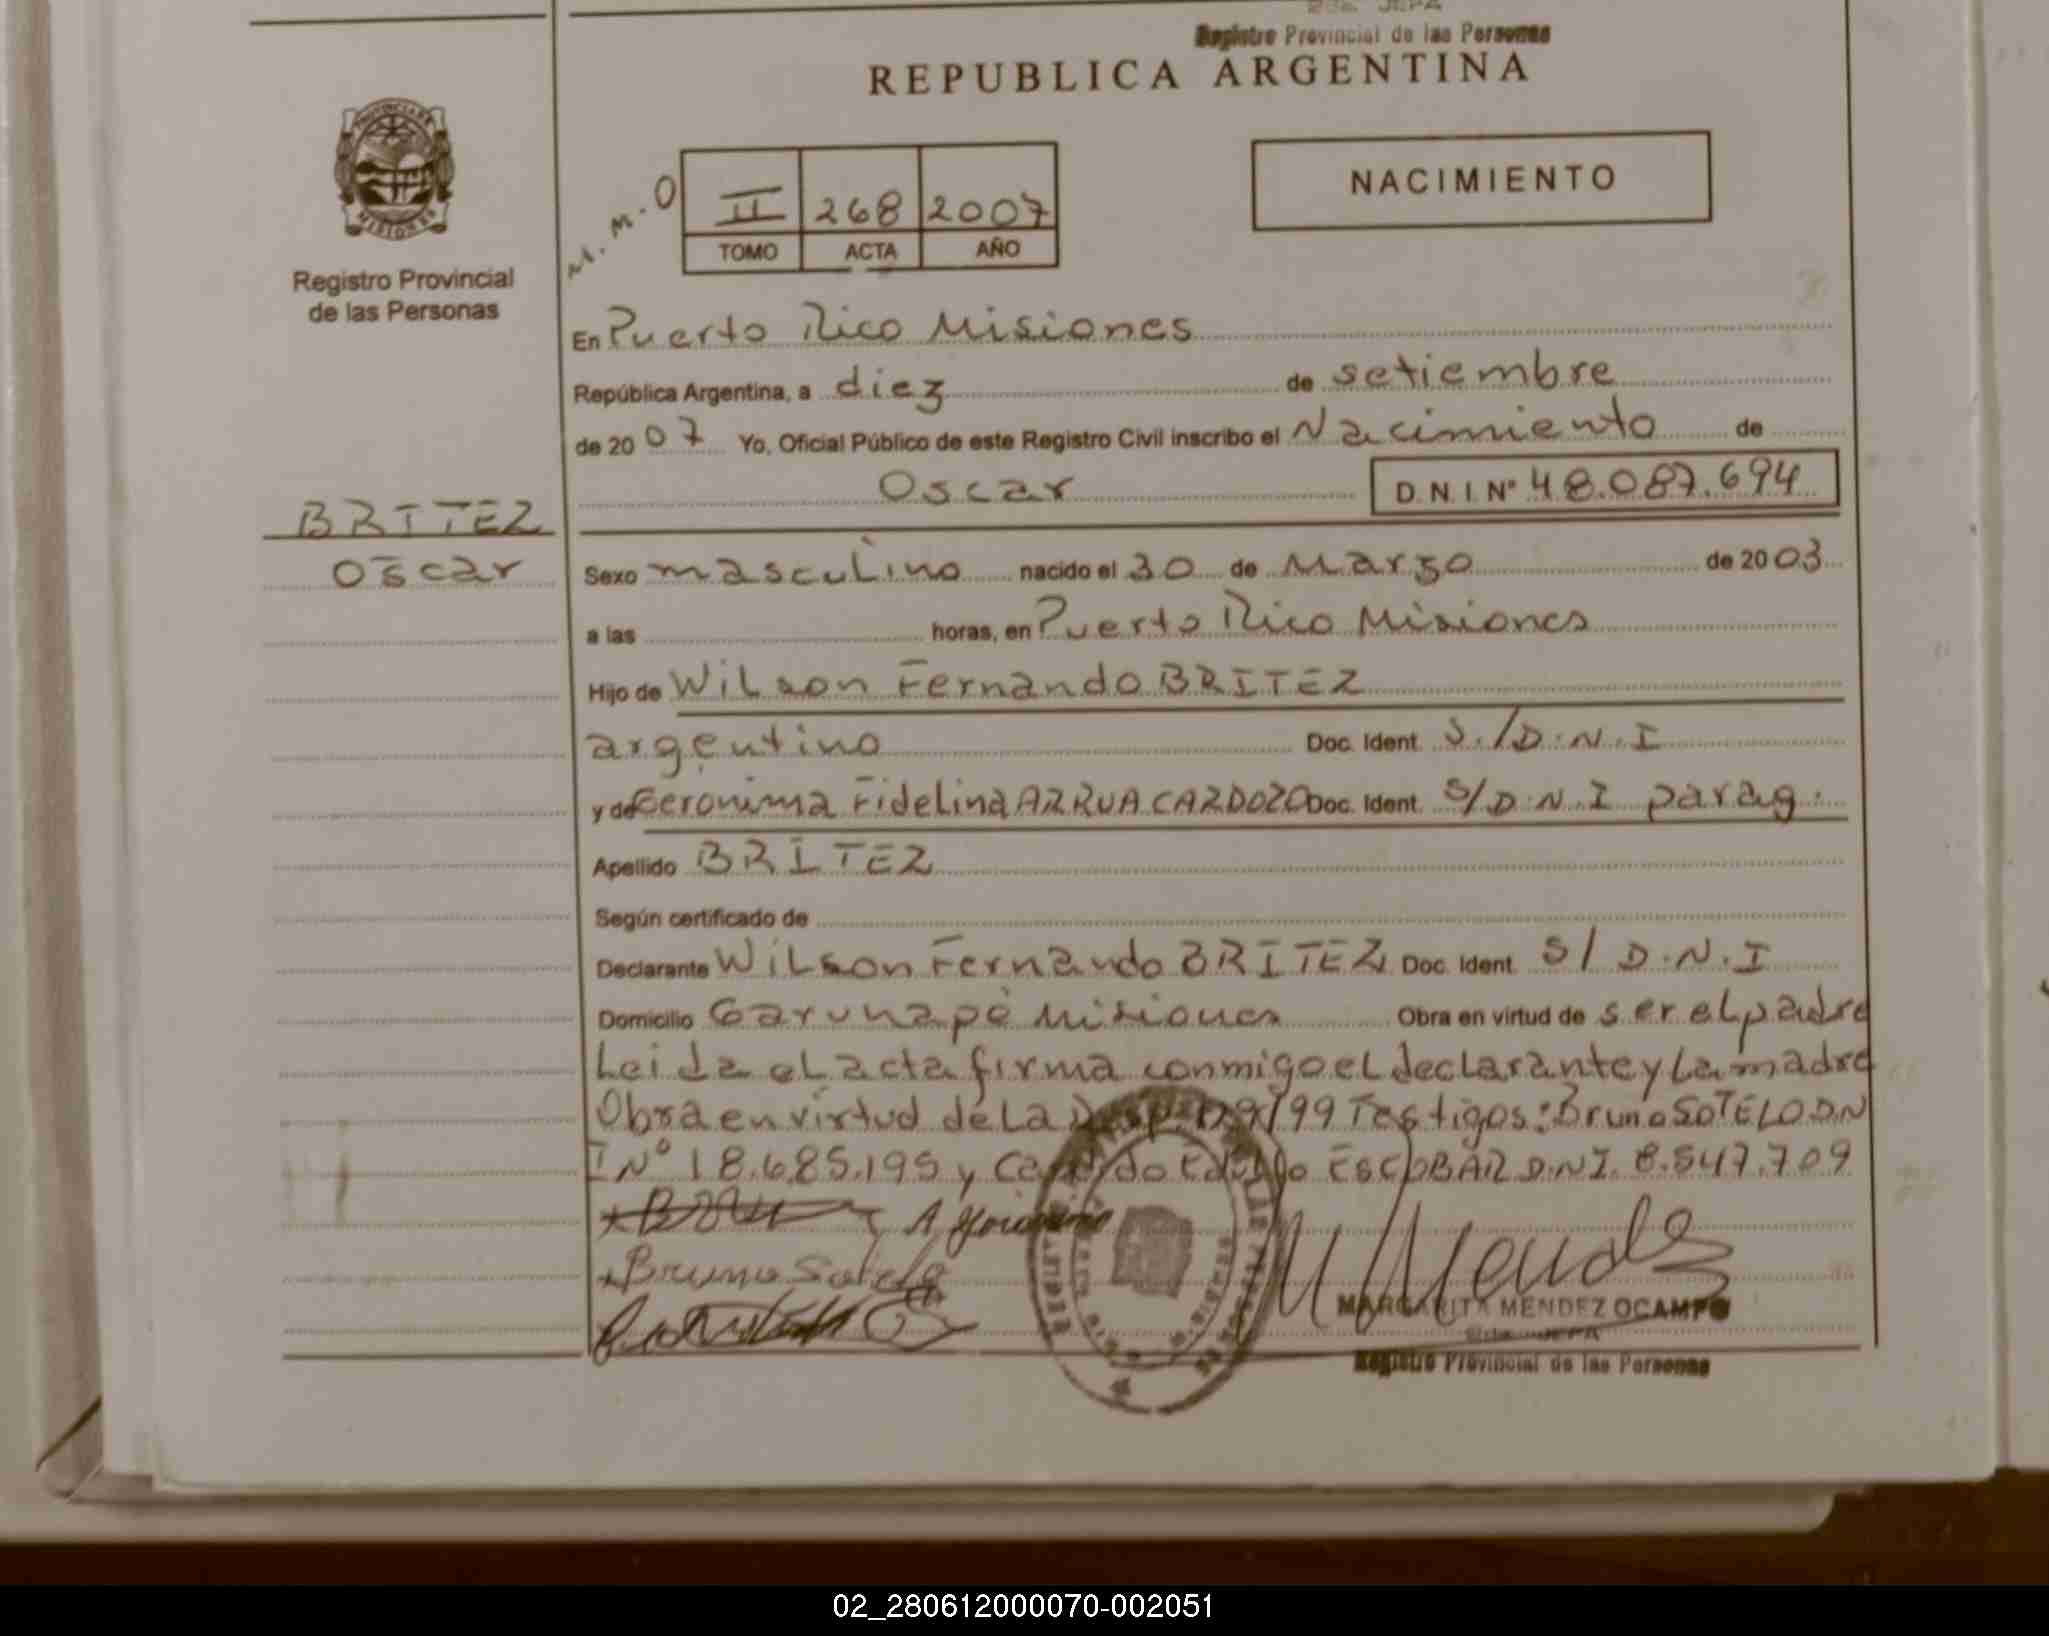 Registro Provincial de las Personas
REPUBLICA ARGENTINA
PROVINCIA DE
MISIONES
Registro Provincial
de las Personas
M.M.O
II 268 2007
TOMO ACTA AÑO
NACIMIENTO
En Puerto Rico Misiones
República Argentina, a diez de setiembre
de 2007 Yo, Oficial Público de este Registro Civil inscribo el Nacimiento de
Oscar D.N.I. Nº 48.087.694
BRITEZ
Oscar
Sexo masculino nacido el 30 de Marzo de 2003
a las horas, en Puerto Rico Misiones
Hijo de Wilson Fernando BRITEZ
argentino Doc. Ident. S./D.N.I
y de Geronima Fidelina ARRUA CARDOZO Doc. Ident. S/D.N.I parag.
Apellido BRITEZ
Según certificado de
Declarante Wilson Fernando BRITEZ Doc. Ident. S/D.N.I
Domicilio Garunapé Misiones Obra en virtud de ser el padre
Leida el acta firma conmigo el declarante y la madre
Obra en virtud de la /99 Testigos: Bruno SOTELO D.N
I Nº 18.685.195 y ESCOBAR D.N.I. 8.547.709
Bruno Sotelo
M Mendez
MARGARITA MENDEZ OCAMPO
Registro Provincial de las Personas
02_280612000070-002051